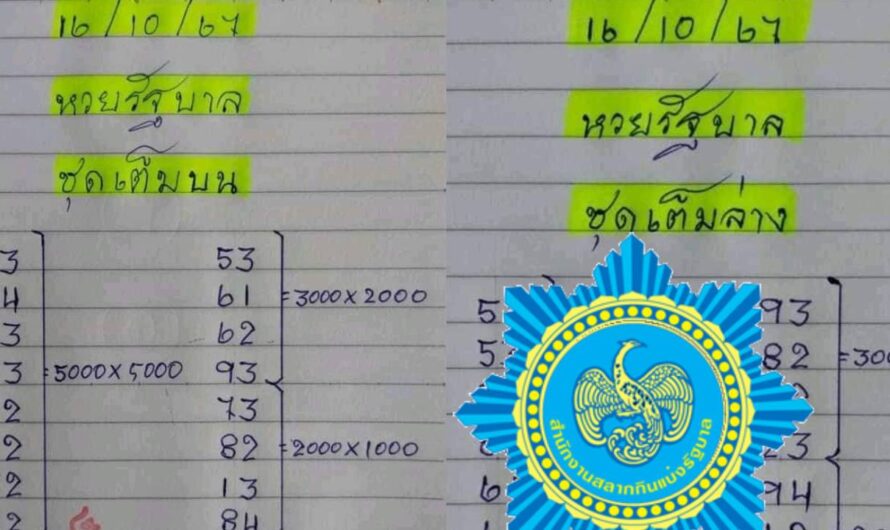 16/10/67
หวยรัฐบาล
ชุดเต็มบน
3
4
3
3 =5000x5000
2
2
2
2
53
61 =3000x2000
62
93
73
82 =2000x1000
13
84
16/10/67
หวยรัฐบาล
ชุดเต็มล่าง
5 93
5 82 =300
23
6 94
สำนักงานสลากกินแบ่งรัฐบาล